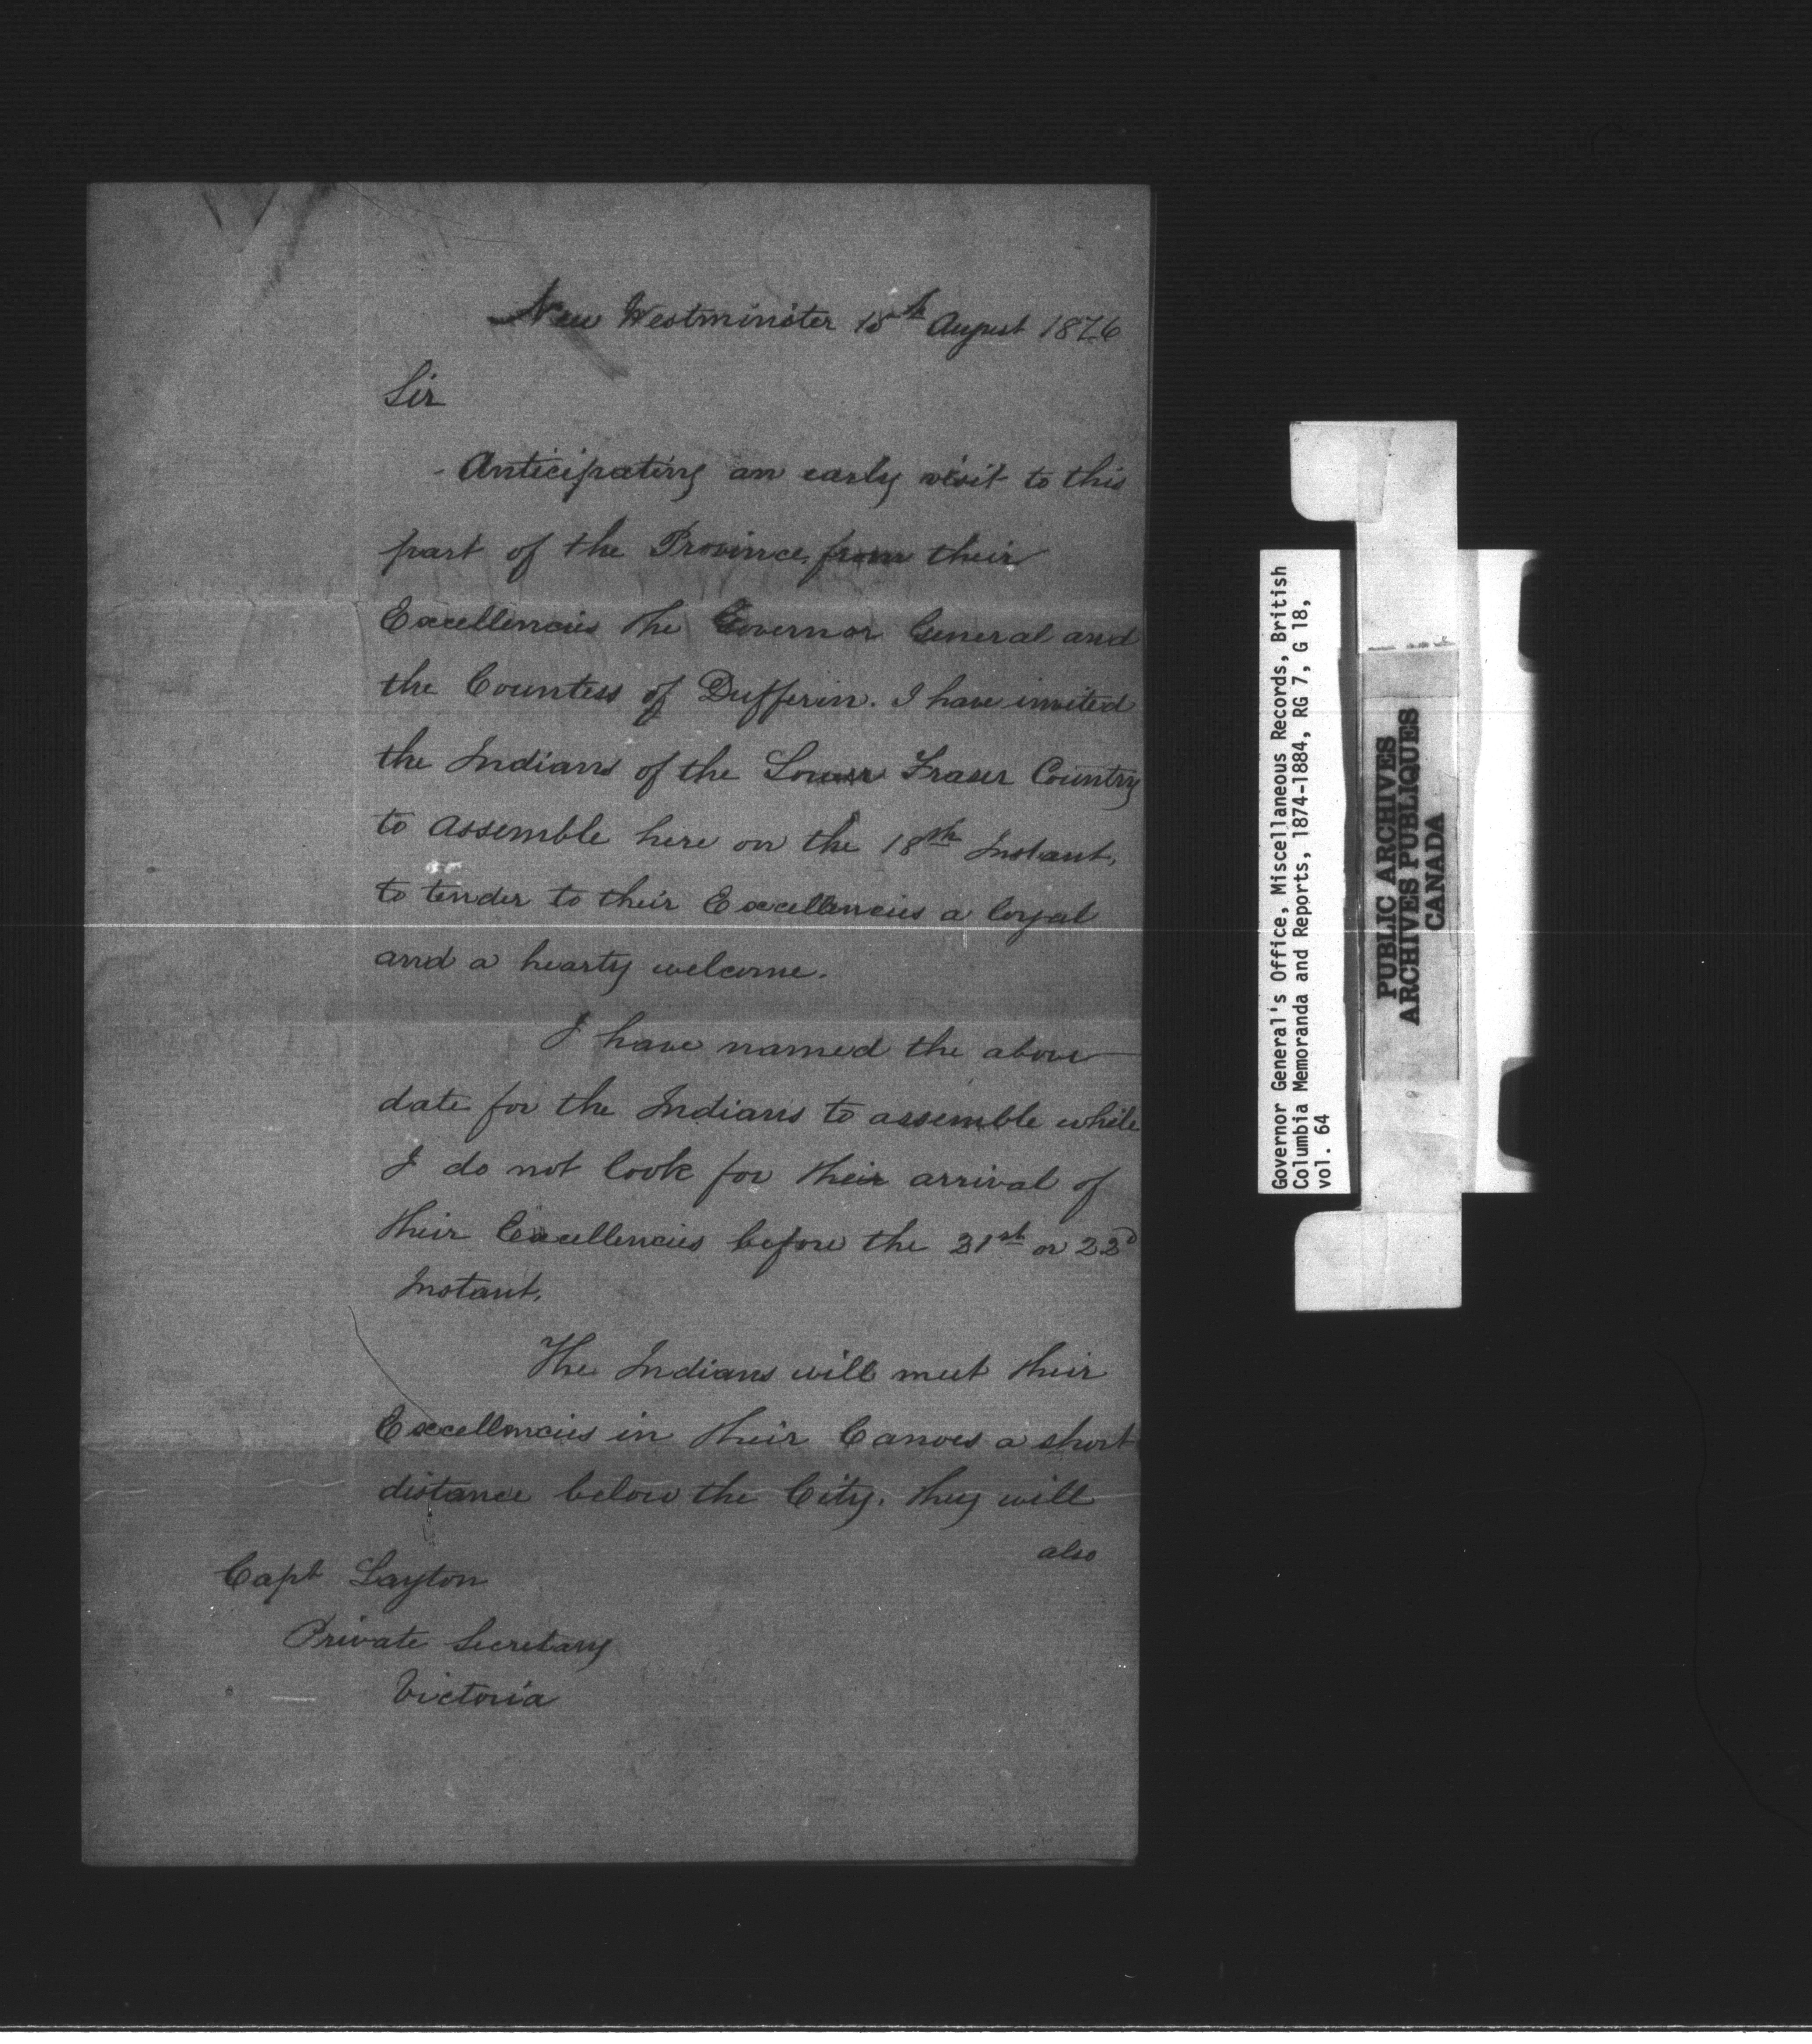 New Westminster 15th August 1876
Sir
- Anticipating an early visit to this
part of the Province, from their
Excellencies the Governor General and
the Countess of Dufferin. I have invited
the Indians of the Lower Fraser Country
to assemble here on the 18th Instant,
to tender to their Excellencies a loyal
and a hearty welcome.
I have named the above
date for the Indians to assemble while
I do not look for their arrival of
their Excellencies before the 21st or 22d
Instant.
The Indians will meet their
Excellencies in their Canoes a short
distance below the City. they will
also
Capt Layton
Private Secretary
Victoria
Governor General's Office, Miscellaneous Records, British
Columbia Memoranda and Reports, 1874-1884, RG 7, G 18,
vol. 64
PUBLIC ARCHIVES
ARCHIVES PUBLIQUES
CANADA